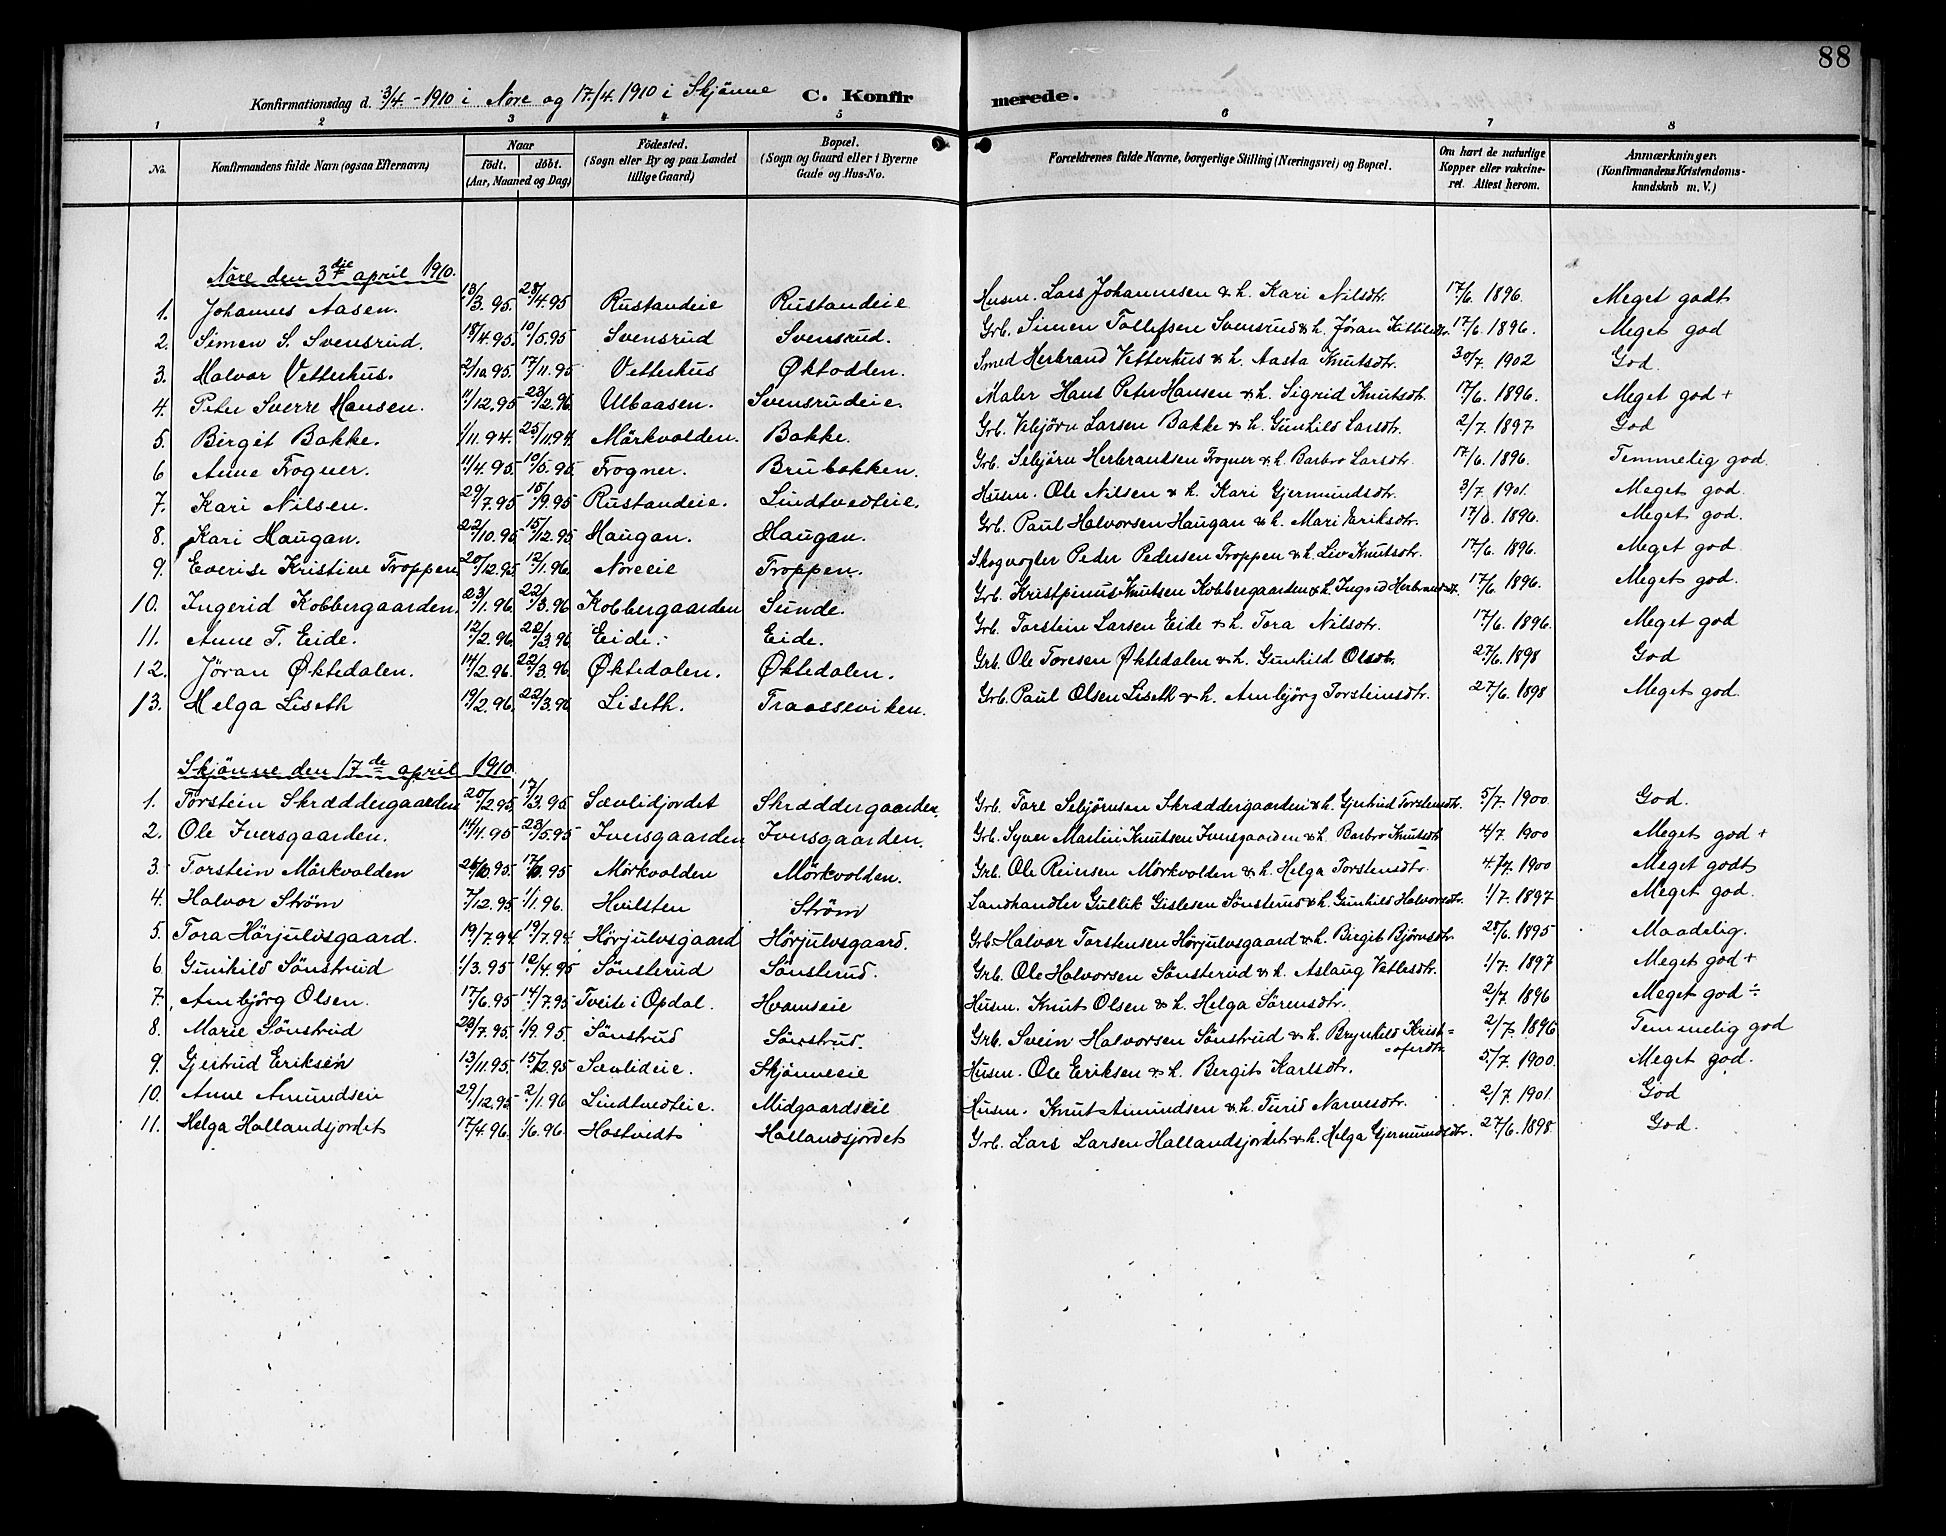 88
Konfirmationsdag d. 3/4 - 1910 i Nore og 17/4. 1910 i Skjönne C. Konfirmerede.
1 2 3 4 5 6 7 8
No. Konfirmandens fulde Navn (ogsaa Efternavn) Naar födt. döbt. (Aar, Maaned og Dag) Födested. (Sogn eller By og paa Landet tillige Gaard) Bopæl. (Sogn og Gaard eller i Byerne Gade og Hus-No. Forældrenes fulde Navne, borgerlige Stilling (Næringsvei) og Bopæl. Om havt de naturlige Kopper eller vakcineret. Attest herom. Anmærkninger. (Konfirmandens Kristendomskundskab m. V.)
Nore den 3die april 1910.
1. Johannes Aasen. 13/3. 95. 28/4. 95 Rustandeie Rustandeie Husm. Lars Johannesen & h. Kari Nilsdtr. 17/6. 1896. Meget godt
2. Simen S. Svensrud. 18/4. 95. 10/5. 95 Svensrud Svensrud. Grb. Simen Tollefsen Svensrud & h. Jöran Kittilsdtr. 17/6. 1896. Meget god
3. Halvor Vetterhus. 2/10 95. 17/11. 95 Vetterhus Øktodden. Smed Herbrand Vetterhus & h. Aasta Knutsdtr. 30/7. 1902 God.
4. Peter Sverre Hansen. 11/12. 95 23/2. 96 Ulbaasen. Svensrudeie. Maler Hans Peter Hansen & h. Sigrid Knutsdtr. 17/6. 1896. Meget god +
5. Birgit Bakke. 1/11. 94. 25/11. 94. Mörkvolden. Bakke. Grb. Vebjörn Larsen Bakke & h. Gunhild Larsdtr. 2/7. 1897 God
6 Anne Frogner. 11/4. 95. 10/5. 95 Frogner. Brubakken. Grb. Sebjörn Herbrandsen Frogner & h. Barbro Larsdtr. 17/6. 1896. Temmelig god.
7. Kari Nilsen. 29/7. 95 15/9. 95 Rustandeie. Lindtvedteie. Husm. Ole Nilsen & h. Kari Gjermundsdtr. 3/7. 1901. Meget god.
8. Kari Haugan. 22/10. 95 15/12. 95 Haugan. Haugan. Grb. Paul Halvorsen Haugan & h. Mari Eriksdtr. 17/6. 1896. Meget god.
9. Everise Kristine Troppen 20/12. 95. 12/1. 96. Noreeie Troppen. Skogvogter Peder Pedersen Troppen & h. Liv Knutsdtr. 17/6. 1896. Meget god
10. Ingerid Kobbergaarden. 23/1. 96. 22/3. 96 Kobbergaarden Sunde. Grb. Kristpinus Knutsen Kobbergaarden & h. Ingrid Herbrandsdtr. 17/6. 1896. Meget god.
11. Anne T. Eide. 12/2. 96. 22/3. 96 Eide. Eide. Grb. Torstein Larsen Eide & h. Tora Nilsdtr. 17/6. 1896. Meget god
12. Jöran Øktedalen. 14/2. 96. 22/3. 96 Øktedalen. Øktedalen. Grb. Ole Toresen Øktedalen & h. Gunhild Olsdtr. 27/6. 1898 God
13. Helga Liseth 19/2. 96. 22/3. 96 Liseth. Traasseviken. Grb. Paul Olsen Liseth & h. Ambjörg Torsteinsdtr. 27/6. 1898 Meget god.
Skjönne den 17de april 1910.
1. Torstein Skræddergaarden 20/2. 95. 17/3. 95 Sævlidjordet Skræddergaarden. Grb. Tore Sebjörnsen Skræddergaarden & h. Gjertrud Torstensdtr. 5/7. 1900. God.
2. Ole Iversgaarden. 14/4. 95 23/5. 95 Iversgaarden Iversgaarden. Grb. Syver Martin Knutsen Iversgaarden & h. Barbro Knutsdtr. 4/7. 1900 Meget god +
3. Torstein Mörkvolden 95. 95 Mörkvolden Mörkvolden. Grb. Ole Reinsen Mörkvolden & h. Helga Torstensdtr. 4/7. 1900 Meget godt
4. Halvor Ström 7/12. 95 1/1. 96. Hvilsten Ström Landhandler Gullik Gislesen Sönsterud & h. Gunhild Halvorsdtr. 1/7. 1897 Meget god.
5. Tora Hörjulvsgaard. 19/7. 94 19/7. 94. Hörjulvsgaard Hörjulvsgaard. Grb. Halvor Torstensen Hörjulvsgaard & h. Birgit Björnsdtr. 28/6. 1895 Maadelig.
6. Gunhild Sönstrud 1/3. 95. 12/4. 95 Sönsterud Sönsterud. Grb. Ole Halvorsen Sönsterud & h. Aslaug Vetlesdtr. 1/7. 1897 Meget god +
7. Ambjörg Olsen. 17/6. 95 14/7. 95 Tveite i Opdal. Hvamseie Husm. Knut Olsen & h. Helga Sörensdtr. 2/7. 1896 Meget god ÷
8. Marie Sönstrud 23/7. 95. 1/9. 95. Sönstrud Sönstrud. Grb. Svein Halvorsen Sönstrud & h. Brynhild Kristofersdtr. 2/7. 1896 Temmelig god
9. Gjertrud Eriksen 13/11. 95. 15/12. 95 Sævlideie. Skjönneeie Husm. Ole Eriksen & h. Bergit Karlsdtr. 5/7. 1900. Meget god.
10. Anne Amundsen 29/12. 95 2/1. 96 Lindtvedteie. Midgaardseie Husm. Knut Amundsen & h. Turid Narvesdtr. 2/7. 1901. God
11. Helga Hallandsjordet 17/4. 96. 1/6. 96. Hostvedt Hallandsjordet Grb. Lars Larsen Hallandsjordet & h. Helga Gjermundsdtr. 27/6. 1898. God.